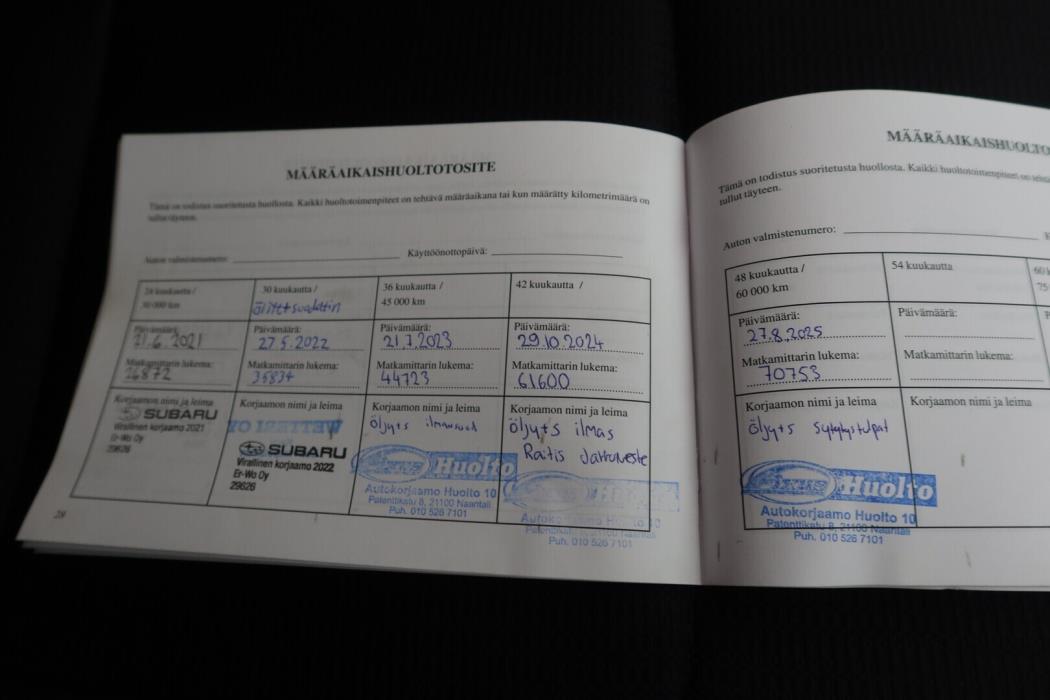 MÄÄRÄAIKAISHUOLTOTOSITE
Tämä on todistus suoritetusta huollosta. Kaikki huoltotoimenpiteet on tehtävä määräaikana tai kun määrätty kilometrimäärä on
tullut täyteen.
Auton valmistenumero:
Käyttöönottopäivä:
24 kuukautta /
30 000 km
Päivämäärä:
21.6.2021
Matkamittarin lukema:
26872
Korjaamon nimi ja leima
SUBARU
Virallinen korjaamo 2021
Er-Wo Oy
29626
30 kuukautta /
Päivämäärä:
27.5.2022
Matkamittarin lukema:
35834
Korjaamon nimi ja leima
SUBARU
Virallinen korjaamo 2022
Er-Wo Oy
29626
36 kuukautta /
45 000 km
Päivämäärä:
21.7.2023
Matkamittarin lukema:
44723
Korjaamon nimi ja leima
öljyt+s
Huolto
Autokorjaamo Huolto 10
Patenttikatu 8, 21100 Naantali
Puh. 010 526 7101
42 kuukautta /
Päivämäärä:
29.10.2024
Matkamittarin lukema:
61600
Korjaamon nimi ja leima
öljyt+s ilmas
Raitis Jarruneste
Huolto
Autokorjaamo Huolto 10
Patenttikatu 8, 21100 Naantali
Puh. 010 526 7101
28
MÄÄRÄAIKAISHUOLTO
Tämä on todistus suoritetusta huollosta. Kaikki huoltotoimenpiteet on
tullut täyteen.
Auton valmistenumero:
48 kuukautta /
60 000 km
Päivämäärä:
27.8.2025
Matkamittarin lukema:
70753
Korjaamon nimi ja leima
öljyt+s sytytystulpat
Huolto
Autokorjaamo Huolto 10
Patenttikatu 8, 21100 Naantali
Puh. 010 526 7101
54 kuukautta
Päivämäärä:
Matkamittarin lukema:
Korjaamon nimi ja leima